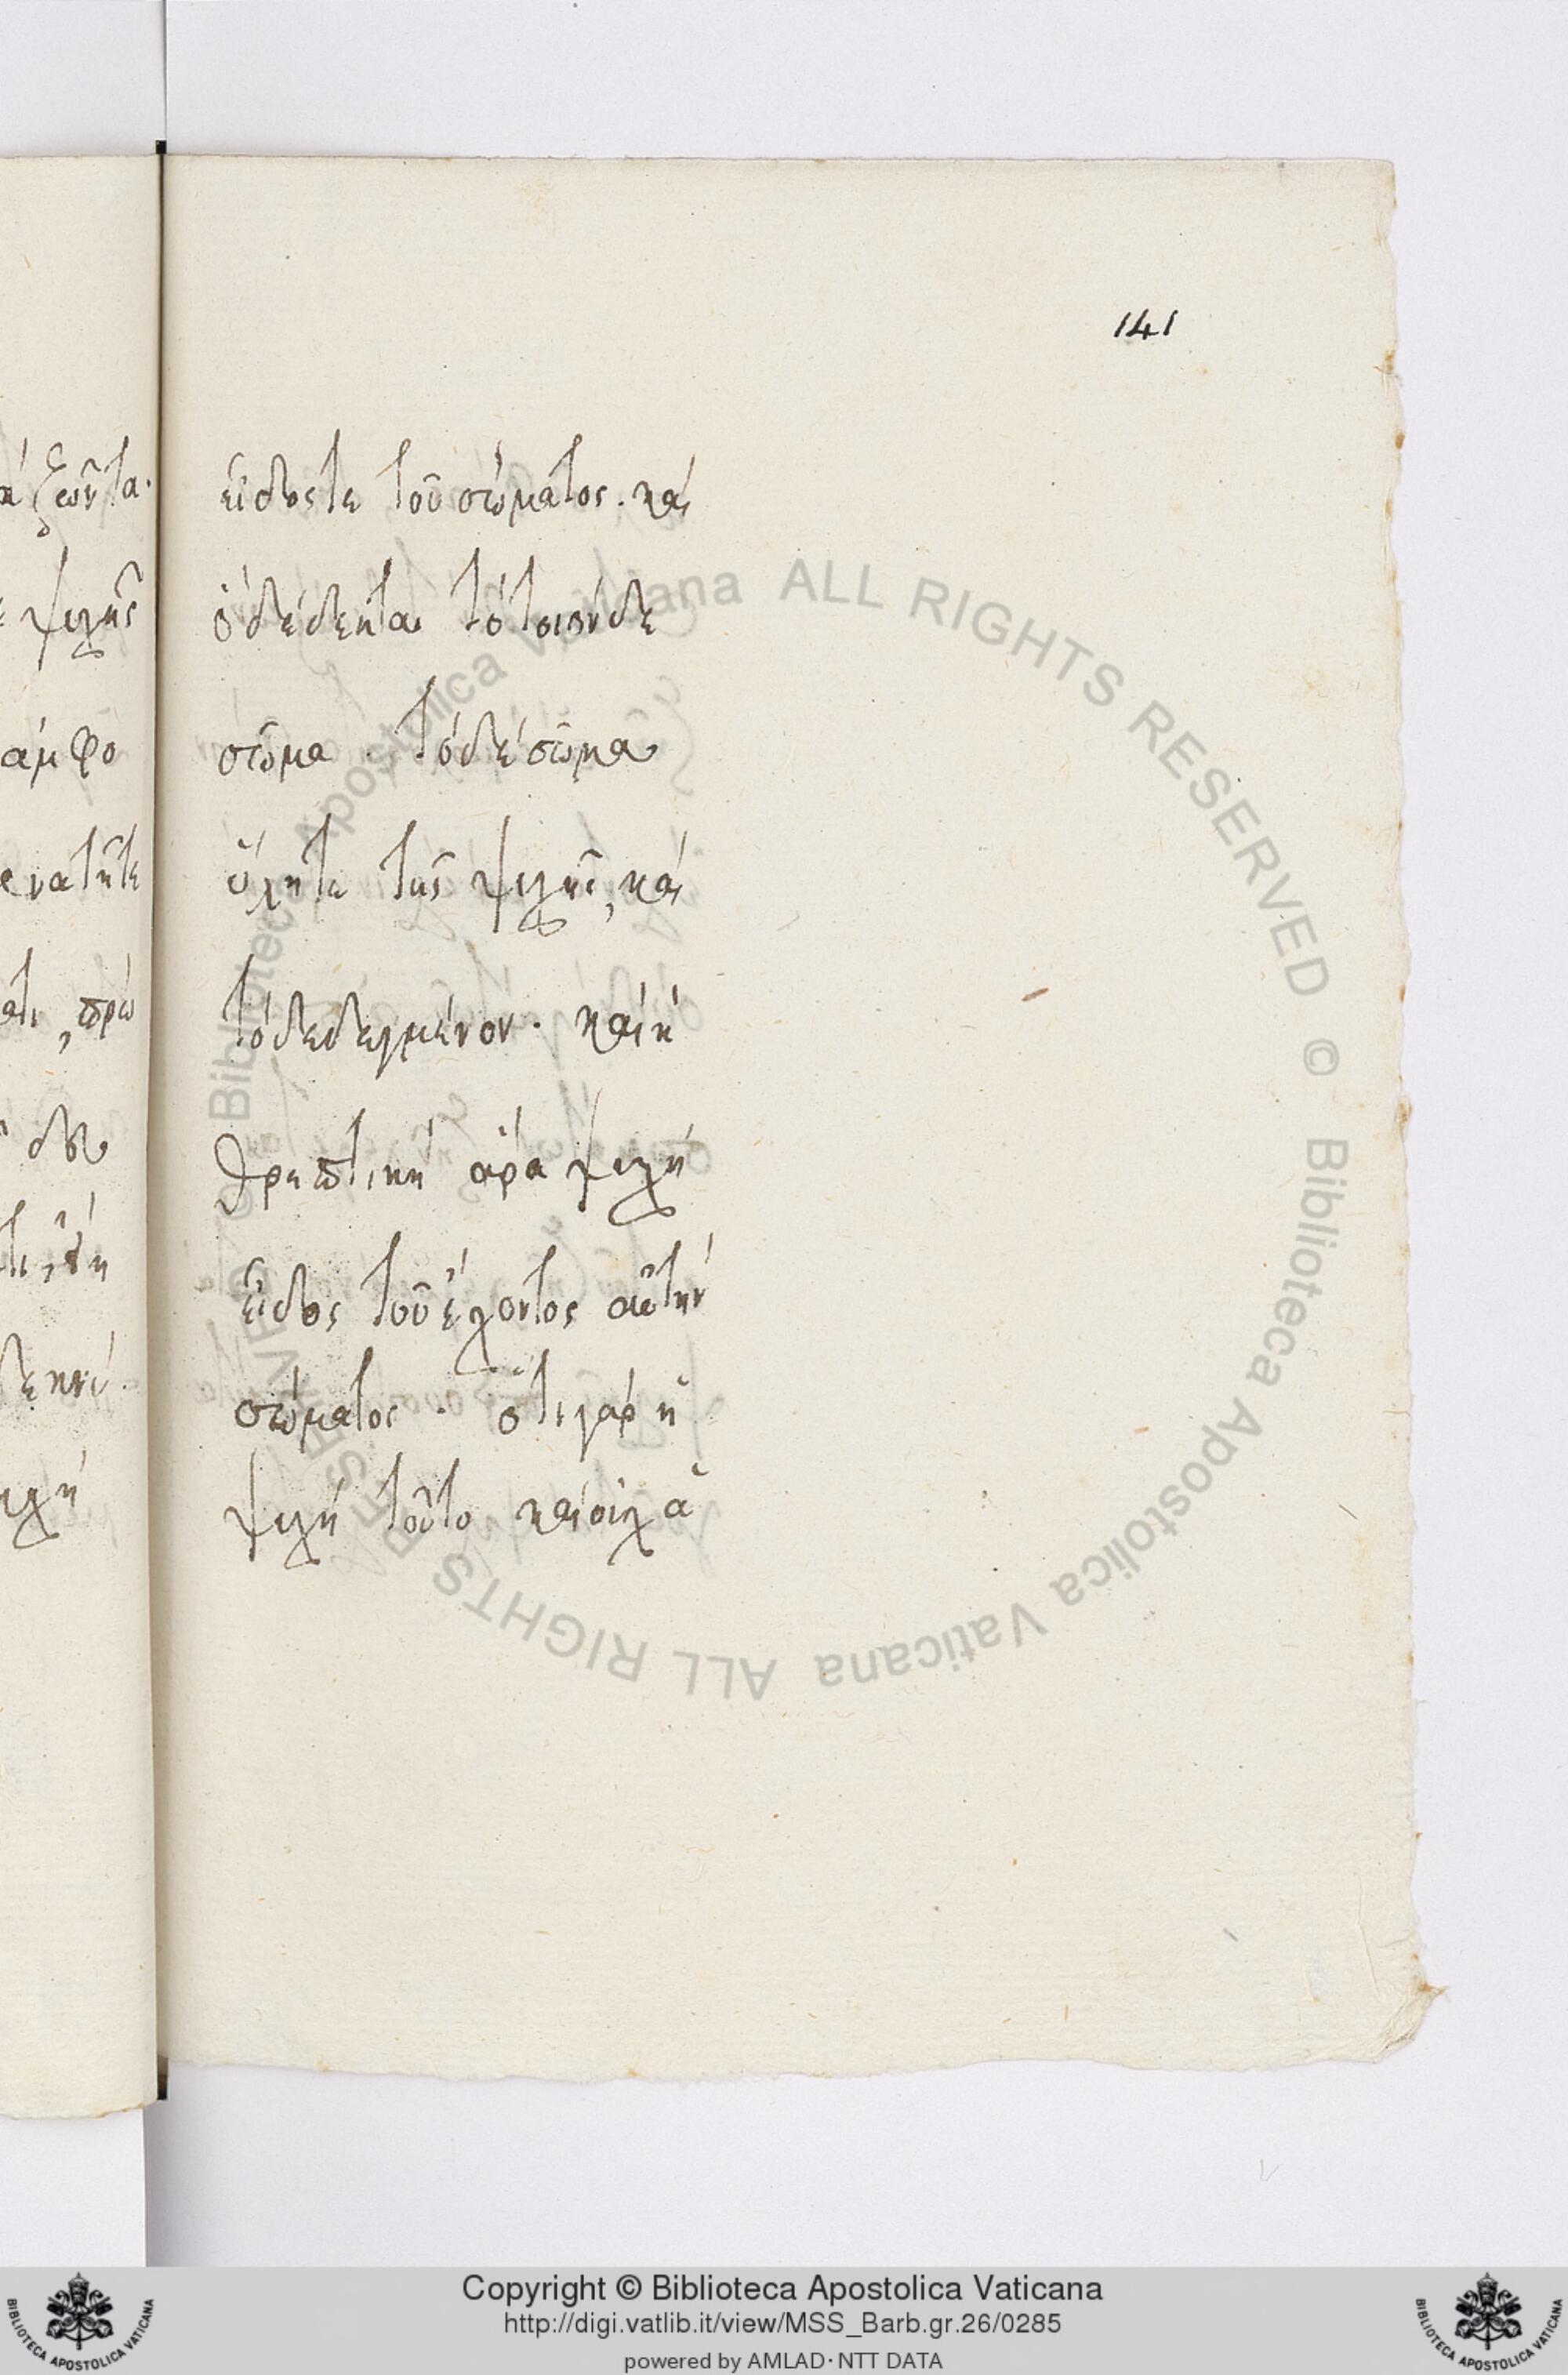 141
εἶδος τε τοῦ σώματος. καὶ
ὃ δέδεκται τὸ τοιόνδε
σῶμα. τὸ δὲ σῶμα
ὕλη τε τῆς ψυχῆς, καὶ
τὸ δεδεγμένον. καὶ ἡ
θρεπτικὴ ἄρα ψυχὴ
εἶδος τοῦ ἔχοντος αὐτὴν
σώματος. ὅτι γὰρ ἡ
ψυχὴ τοῦτο καὶ οὐχ ἁ
ψυχῆς
ἀμφο
Copyright © Biblioteca Apostolica Vaticana
http://digi.vatlib.it/view/MSS_Barb.gr.26/0285
powered by AMLAD·NTT DATA
© Biblioteca Apostolica Vaticana ALL RIGHTS RESERVED © Biblioteca Apostolica Vaticana ALL RIGHTS RESERVED
BIBLIOTECA APOSTOLICA VATICANA
BIBLIOTECA APOSTOLICA VATICANA